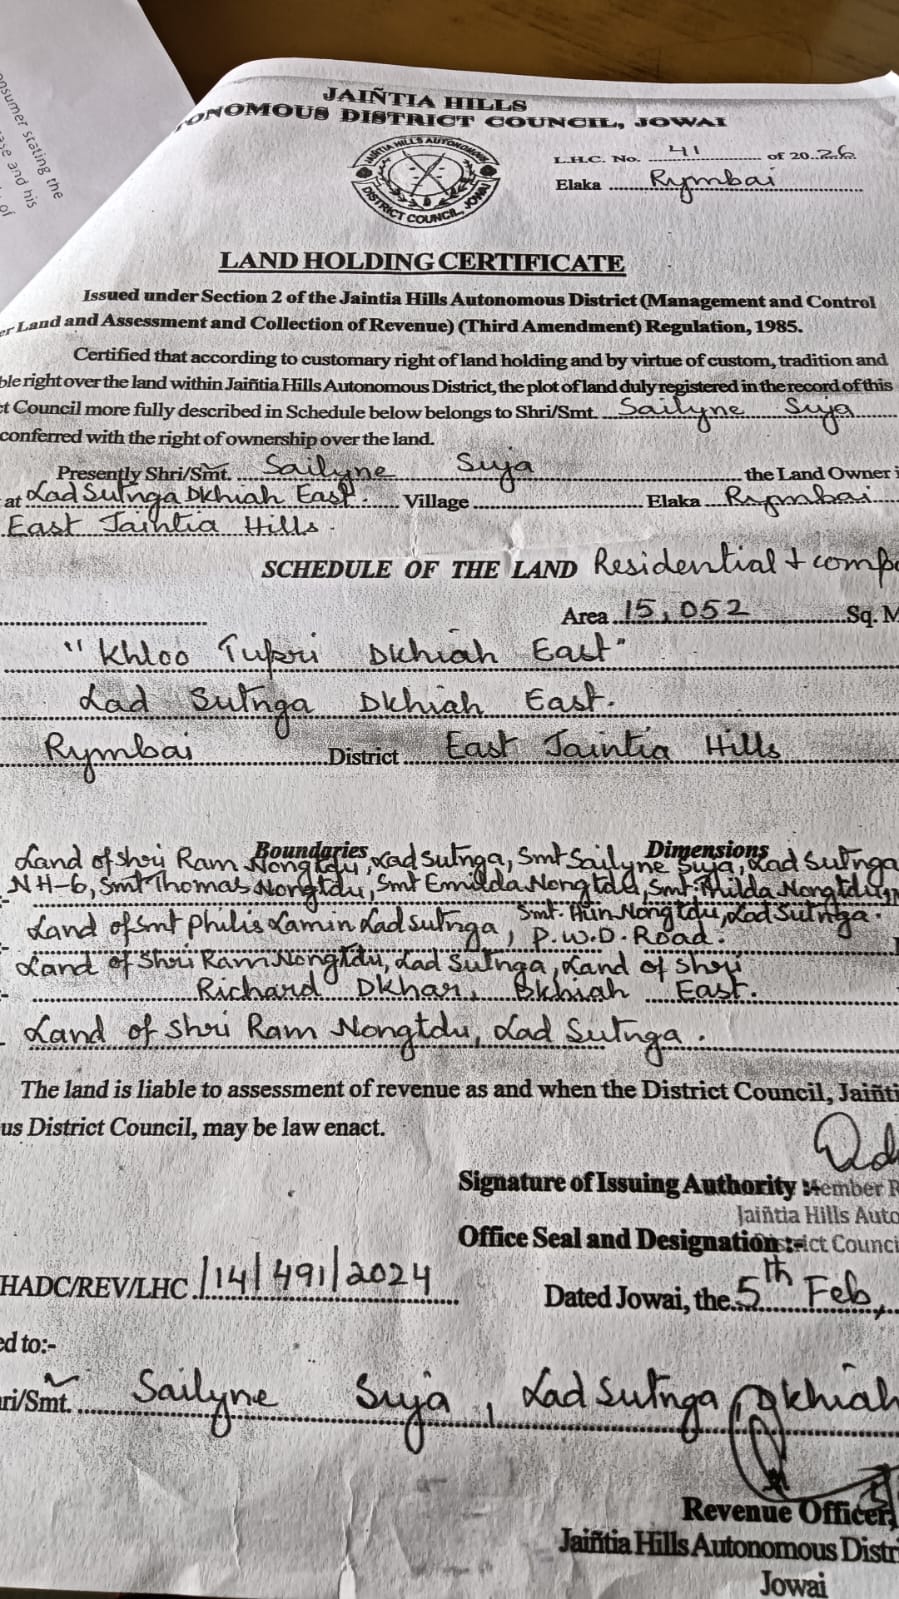 onsumer stating the
and his
of
JAIÑTIA HILLS
ONOMOUS DISTRICT COUNCIL, JOWAI
JAIÑTIA HILLS AUTONOMOUS
DISTRICT COUNCIL, JOWAI
L.H.C. No. 41 of 2026
Elaka Rymbai
LAND HOLDING CERTIFICATE
Issued under Section 2 of the Jaintia Hills Autonomous District (Management and Control
er Land and Assessment and Collection of Revenue) (Third Amendment) Regulation, 1985.
Certified that according to customary right of land holding and by virtue of custom, tradition and
ble right over the land within Jaiñtia Hills Autonomous District, the plot of land duly registered in the record of this
ct Council more fully described in Schedule below belongs to Shri/Smt. Sailyne Suja
conferred with the right of ownership over the land.
Presently Shri/Smt. Sailyne Suja the Land Owner i
at Lad Sutnga Dkhiah East. Village Elaka Rymbai
East Jaintia Hills.
SCHEDULE OF THE LAND Residential + compo
Area 15,052 Sq. M
"Khloo Tupri Dkhiah East"
Lad Sutnga Dkhiah East.
Rymbai District East Jaintia Hills
Boundaries Dimensions
Land of Shri Ram Nongtdu, Lad Sutnga, Smt Sailyne Suja, Lad Sutnga
NH-6, Smt Thomas Nongtdu, Smt Emilda Nongtdu, Smt. Hilda Nongtdu,
Smt. Aun Nongtdu, Lad Sutnga.
Land of Smt Philis Lamin Lad Sutnga, P.W.D. Road.
Land of Shri Ram Nongtdu, Lad Sutnga, Land of Shri
Richard Dkhar, Dkhiah East.
Land of Shri Ram Nongtdu, Lad Sutnga.
The land is liable to assessment of revenue as and when the District Council, Jaiñti
us District Council, may be law enact.
Signature of Issuing Authority :- Member R
Jaiñtia Hills Auto
Office Seal and Designation :- ict Counci
HADC/REV/LHC /14/491/2024
Dated Jowai, the 5th Feb,
ed to:-
ri/Smt. Sailyne Suja, Lad Sutnga, Dkhiah
Revenue Officer,
Jaiñtia Hills Autonomous Distr
Jowai